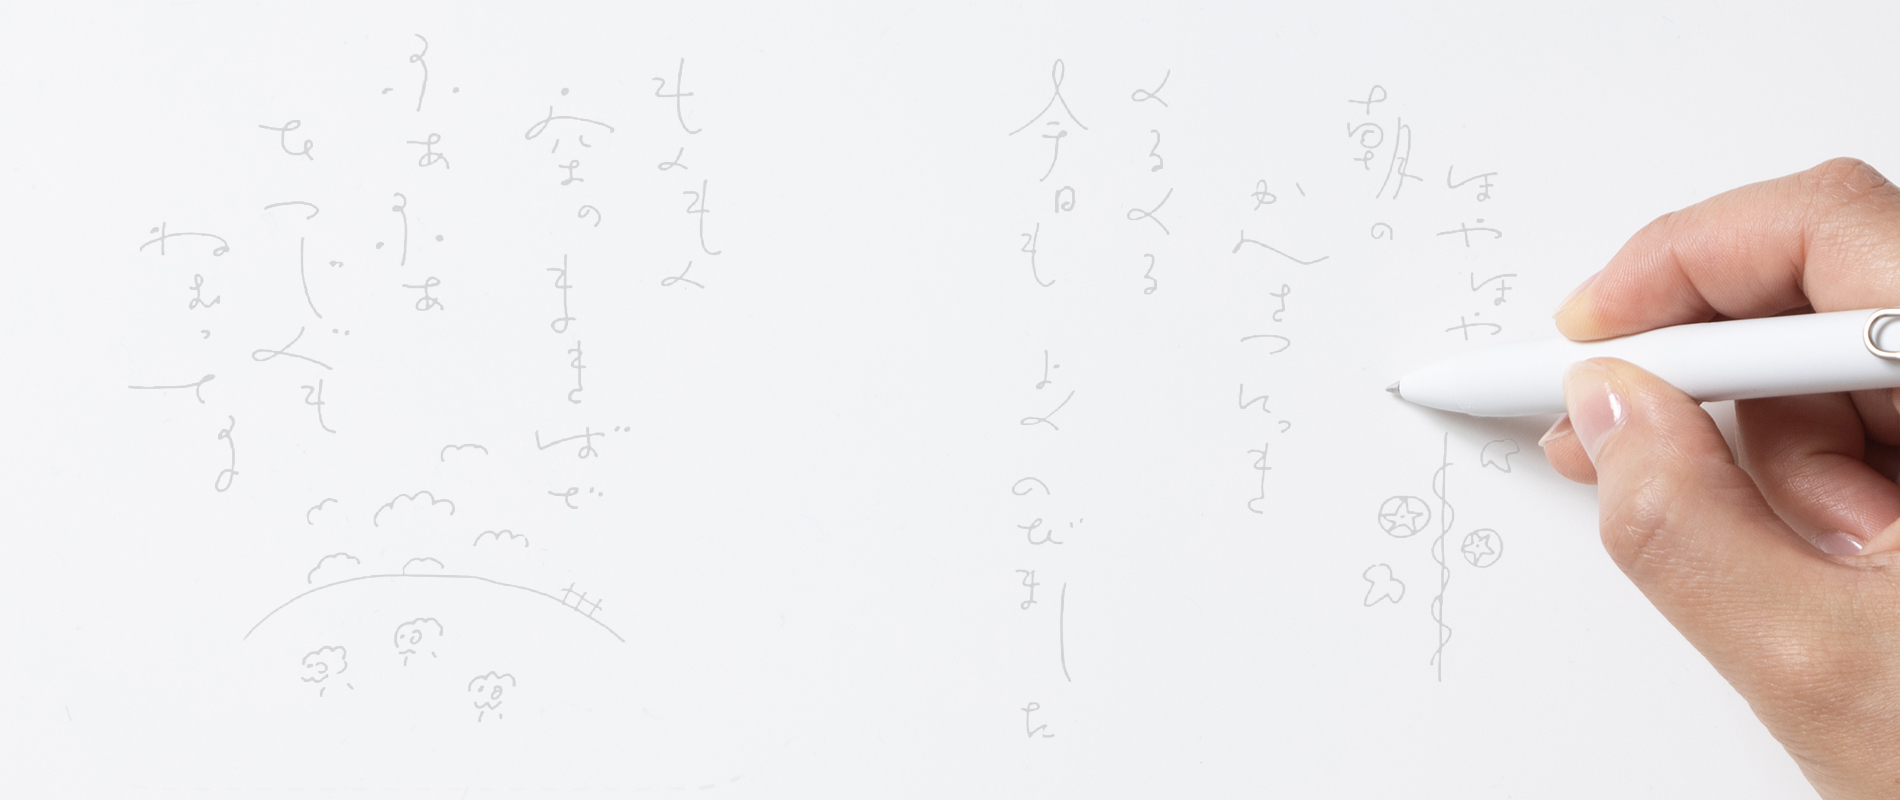 ほやほや
朝の
かんさつにっき
くるくる
今日も よくのびました
もくもく
空のまきばで
ふあふあ
ひつじぐも
ねむってる